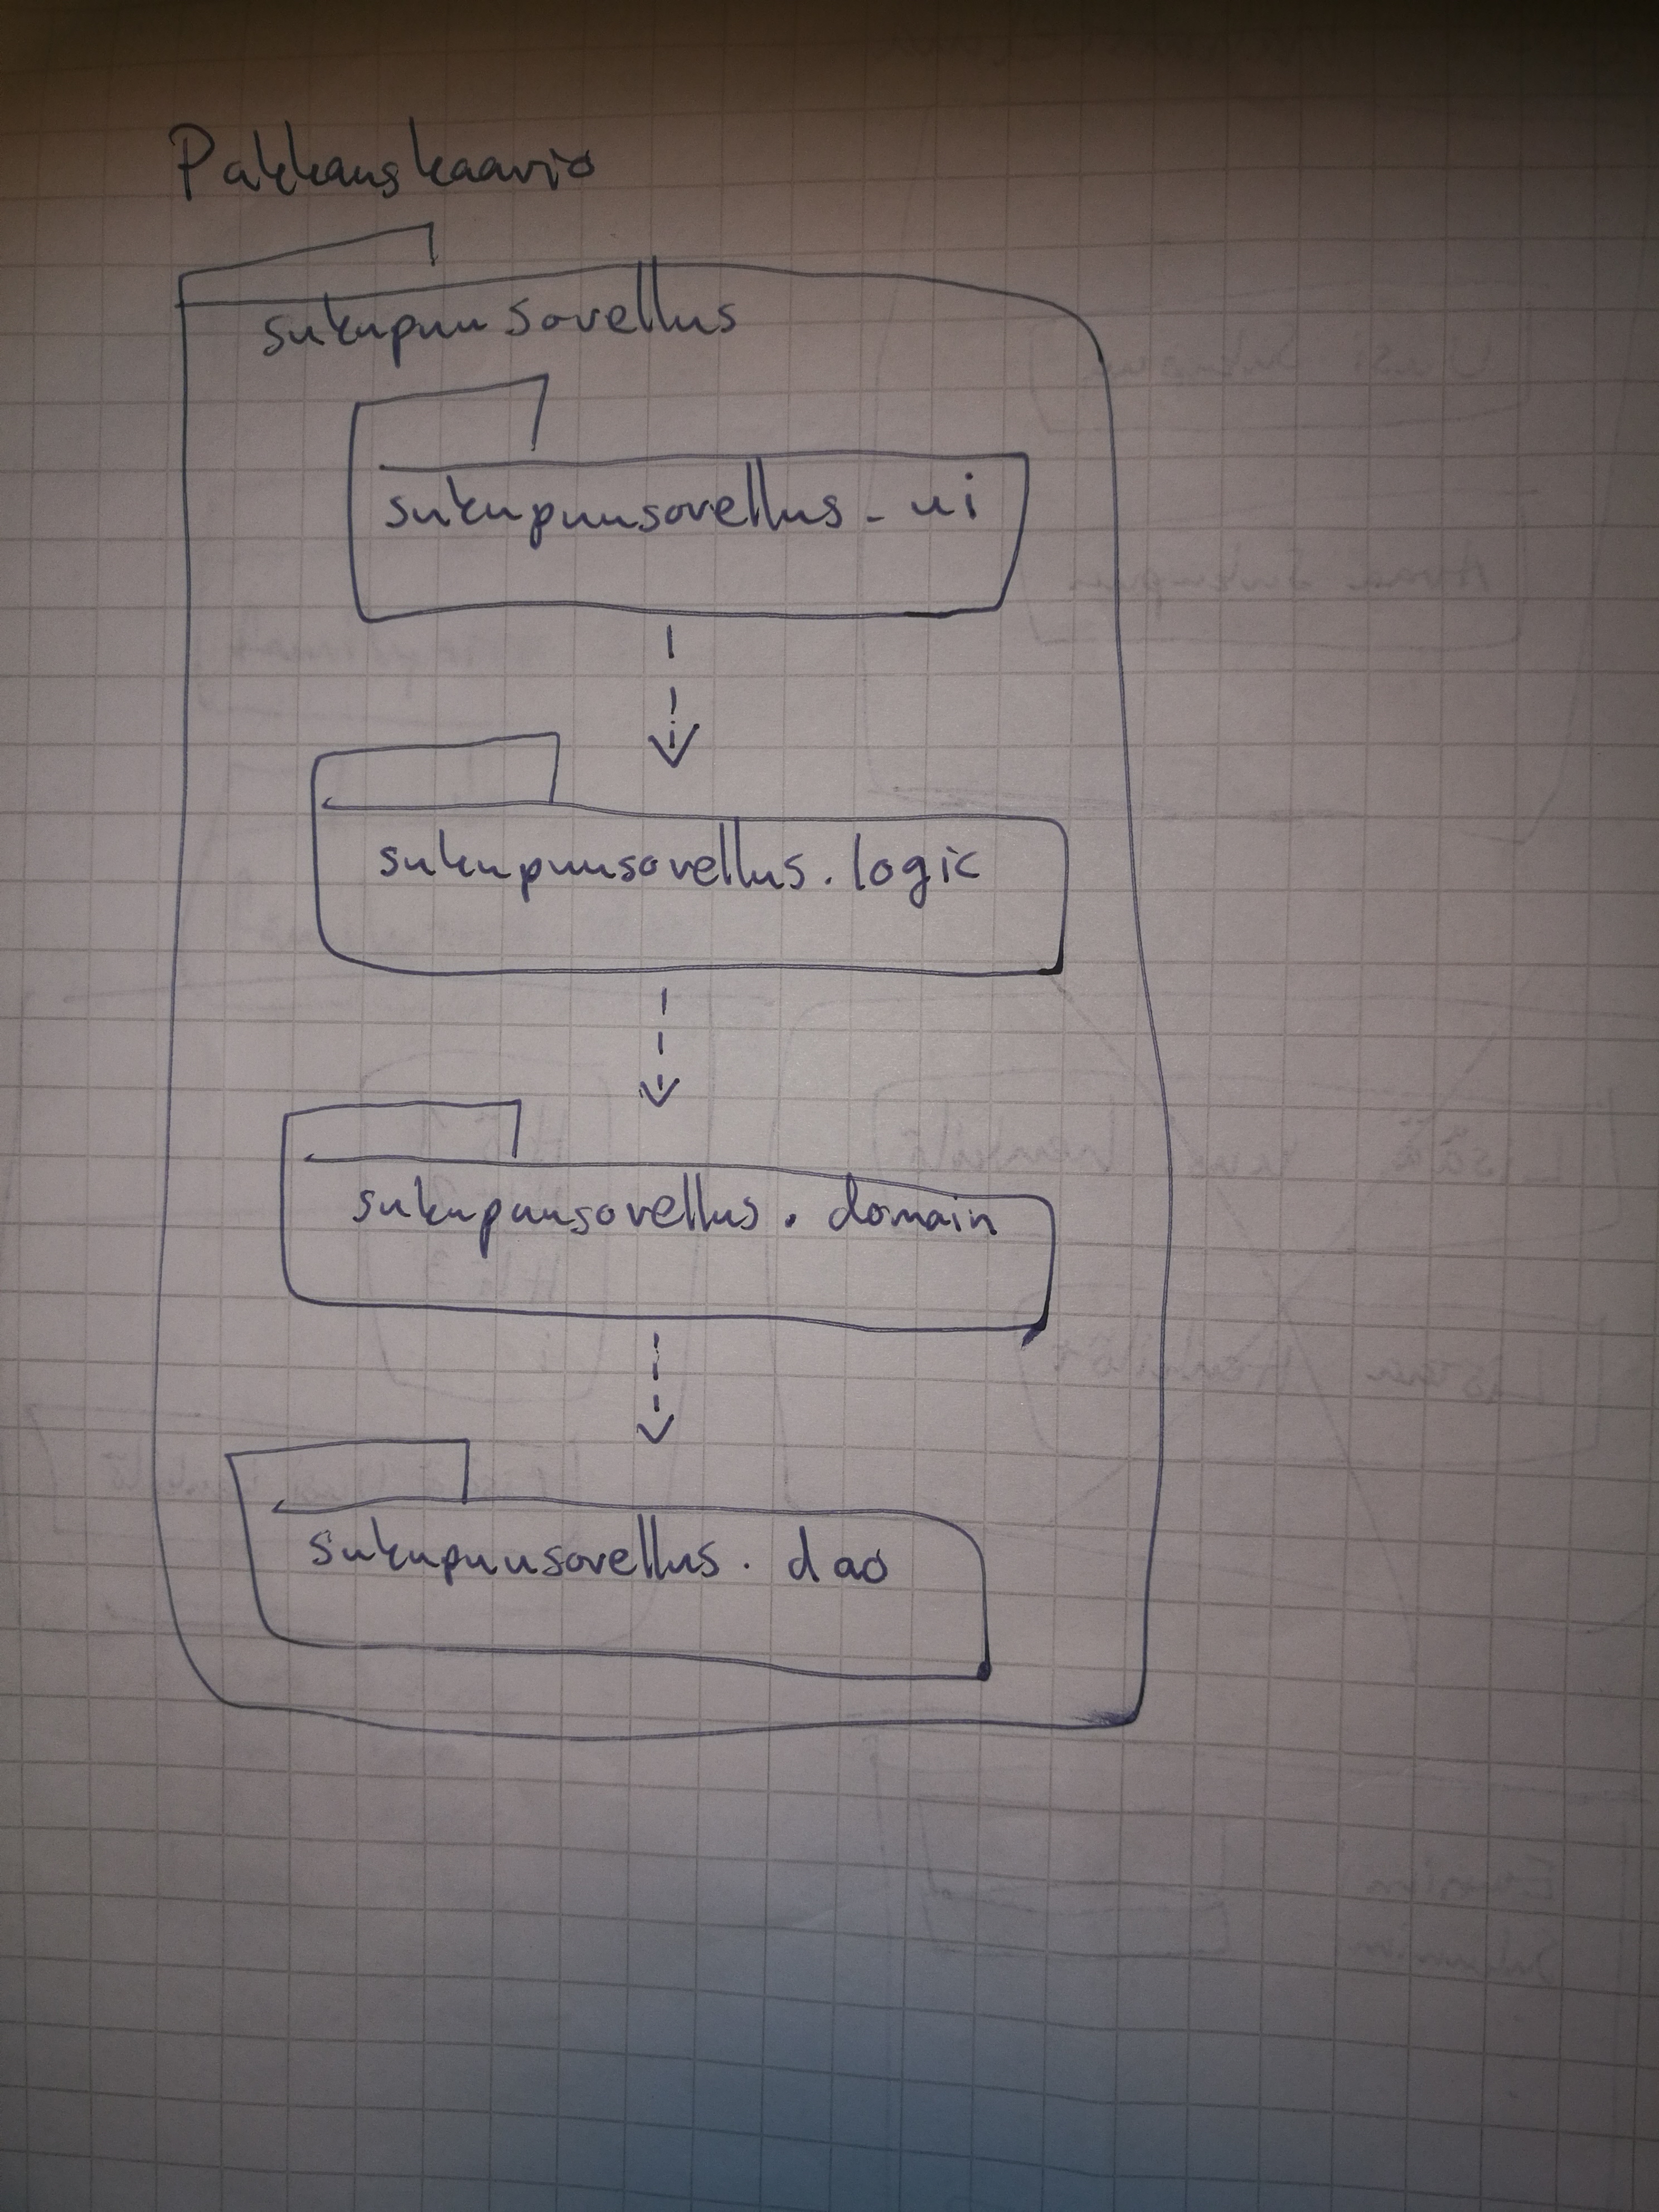 Pakkauskaavio
sukupuusovellus
sukupuusovellus - ui
sukupuusovellus . logic
sukupuusovellus . domain
sukupuusovellus . dao